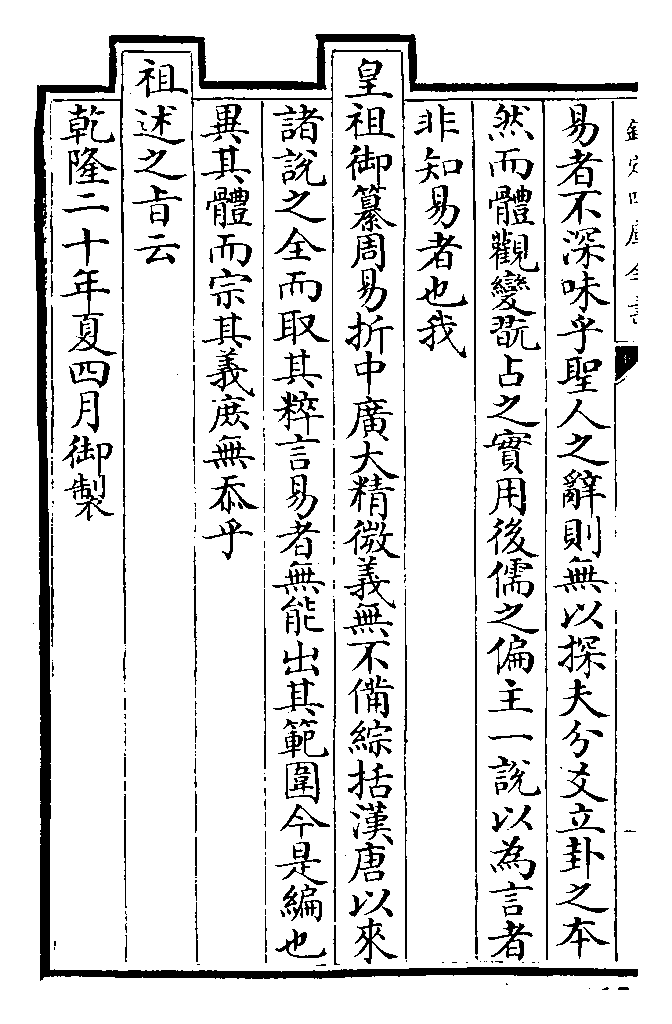 欽定四庫全書
易者不深味乎聖人之辭則無以探夫分爻立卦之本
然而體觀變翫占之實用後儒之偏主一說以為言者
非知易者也我
皇祖御纂周易折中廣大精微義無不備綜括漢唐以來
諸說之全而取其粹言易者無能出其範圍今是編也
異其體而宗其義庶無忝乎
祖述之旨云
乾隆二十年夏四月御製